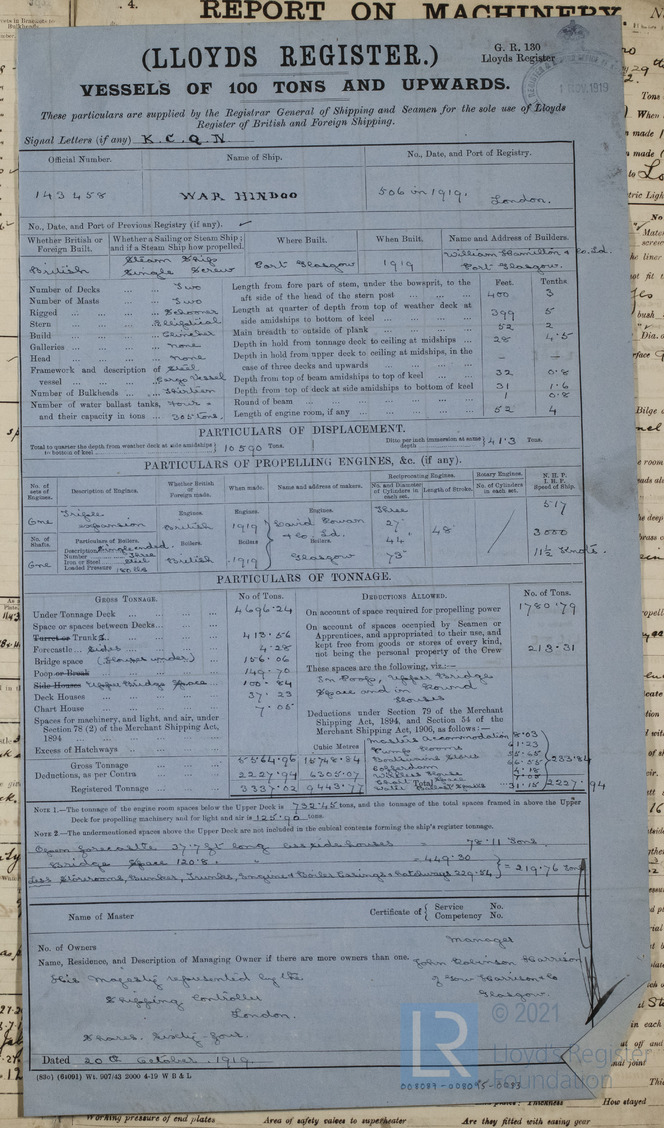 4. REPORT ON MACHINERY
(LLOYDS REGISTER.)
G. R. 130
Lloyds Register
VESSELS OF 100 TONS AND UPWARDS.
1919
These particulars are supplied by the Registrar General of Shipping and Seamen for the sole use of Lloyds
Register of British and Foreign Shipping.
Signal Letters (if any) K.C.Q.N.
Official Number. Name of Ship. No., Date, and Port of Registry.
143458 WAR HINDOO 506 in 1919. London.
No., Date, and Port of Previous Registry (if any).
Whether British or Foreign Built. Whether a Sailing or Steam Ship; and if a Steam Ship how propelled. Where Built. When Built. Name and Address of Builders.
British Steam Ship Single Screw Port Glasgow 1919 William Hamilton & Co. Ld. Port Glasgow.
Number of Decks ... Two Length from fore part of stem, under the bowsprit, to the Feet. Tenths.
Number of Masts ... Two aft side of the head of the stern post ... 400 3
Rigged ... Schooner Length at quarter of depth from top of weather deck at
Stern ... Elliptical side amidships to bottom of keel ... 399 5
Build ... Clincher Main breadth to outside of plank ... 52 2
Galleries ... none Depth in hold from tonnage deck to ceiling at midships ... 28 4.5
Head ... none Depth in hold from upper deck to ceiling at midships, in the
Framework and description of Steel case of three decks and upwards ... — —
vessel ... Cargo Vessel Depth from top of beam amidships to top of keel ... 32 0.8
Number of Bulkheads ... Depth from top of deck at side amidships to bottom of keel 31 1.6
Number of water ballast tanks, Four & Round of beam ... 1 0.8
and their capacity in tons ... 305 tons. Length of engine room, if any ... 52 4
PARTICULARS OF DISPLACEMENT.
Total to quarter the depth from weather deck at side amidships to bottom of keel ... 10590 Tons. Ditto per inch immersion at same depth 41.3 Tons.
PARTICULARS OF PROPELLING ENGINES, &c. (if any).
No. of sets of Engines. Description of Engines. Whether British or Foreign made. When made. Name and address of makers. Reciprocating Engines. Rotary Engines. N. H. P. I. H. P. Speed of Ship.
No. and Diameter of Cylinders in each set. Length of Stroke. No. of Cylinders in each set.
One Triple expansion Engines. British Engines. 1919 Engines. David Rowan & Co. Ld. Three 27" 44" 73" 48" 517
No. of Shafts. Particulars of Boilers. Boilers. Boilers. Boilers. 3000
Description Single ended.
Number Three
Iron or Steel Steel
Loaded Pressure 180 lbs
One British 1919 Glasgow 11½ Knots.
PARTICULARS OF TONNAGE.
GROSS TONNAGE. No. of Tons. DEDUCTIONS ALLOWED. No. of Tons.
Under Tonnage Deck ... 4696.24 On account of space required for propelling power 1780.79
Space or spaces between Decks ...
Turret or Trunk ... 413.56 On account of spaces occupied by Seamen or Apprentices, and appropriated to their use, and kept free from goods or stores of every kind, not being the personal property of the Crew 213.31
Forecastle sides ... 4.28
Bridge space (Houses under) ... 156.06
Poop or Break ... 149.70 These spaces are the following, viz.:—
Side Houses Upper Bridge Space ... 100.84 In Poop, Upper Bridge
Deck Houses ... 37.23 Space and in Round
Chart House ... 7.05 Houses
Spaces for machinery, and light, and air, under Section 78 (2) of the Merchant Shipping Act, 1894 ... Deductions under Section 79 of the Merchant Shipping Act, 1894, and Section 54 of the Merchant Shipping Act, 1906, as follows:—
Excess of Hatchways ... Cubic Metres Master's Accommodation 8.03
Pump Rooms 61.23
Boatswains Stores
Cofferdam
Gross Tonnage 5564.96 15748.84 233.84
Deductions, as per Contra 2227.94 6305.07
Registered Tonnage 3337.02 9443.77 Total 2227.94
NOTE 1.—The tonnage of the engine room spaces below the Upper Deck is 732.45 tons, and the tonnage of the total spaces framed in above the Upper
Deck for propelling machinery and for light and air is 125.90 tons.
NOTE 2.—The undermentioned spaces above the Upper Deck are not included in the cubical contents forming the ship's register tonnage.
Open forecastle 37.7 ft long less side houses = 78.11 Tons.
Bridge Space 120.8 " = 449.30
Less Storerooms, Bunker, Trunks, Engine & Boiler Casings & hatchways 229.54 = 219.76 Tons
Name of Master Certificate of Service No. Competency No.
No. of Owners Manager
Name, Residence, and Description of Managing Owner if there are more owners than one. John Robinson Harrison
His Majesty represented by the of Gow Harrison & Co
Shipping Controller Glasgow.
London.
Shares. Sixty-four.
Dated 20th October. 1919.
(83c) (61091) Wt. 907/43 2000 4-19 W B & L
© 2021
LR
Lloyd's Register
Foundation
008089-008095-0093
Working pressure of end plates Area of safety valves to superheater Are they fitted with easing gear